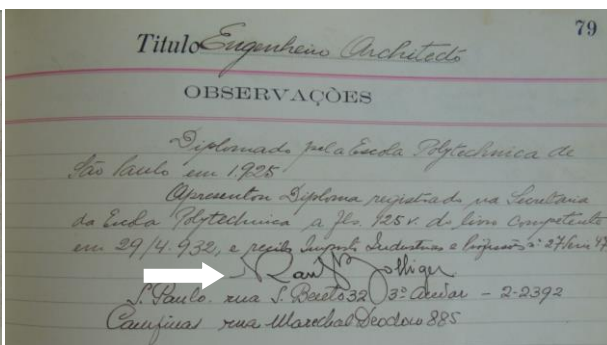 79
Titulo Engenheiro Architecto
OBSERVAÇÕES
Diplomado pela Escola Polytechnica de
São Paulo em 1925
Apresentou Diploma registrado na Secretaria
da Escola Polytechnica a fls. 125 v. do livro competente
em 29/4.932, e recibo Imposto Industrias e Profissões nº 27
Raul Bolliger
S. Paulo. rua S. Bento 32 3º andar - 2-2392
Campinas rua Marechal Deodoro 885